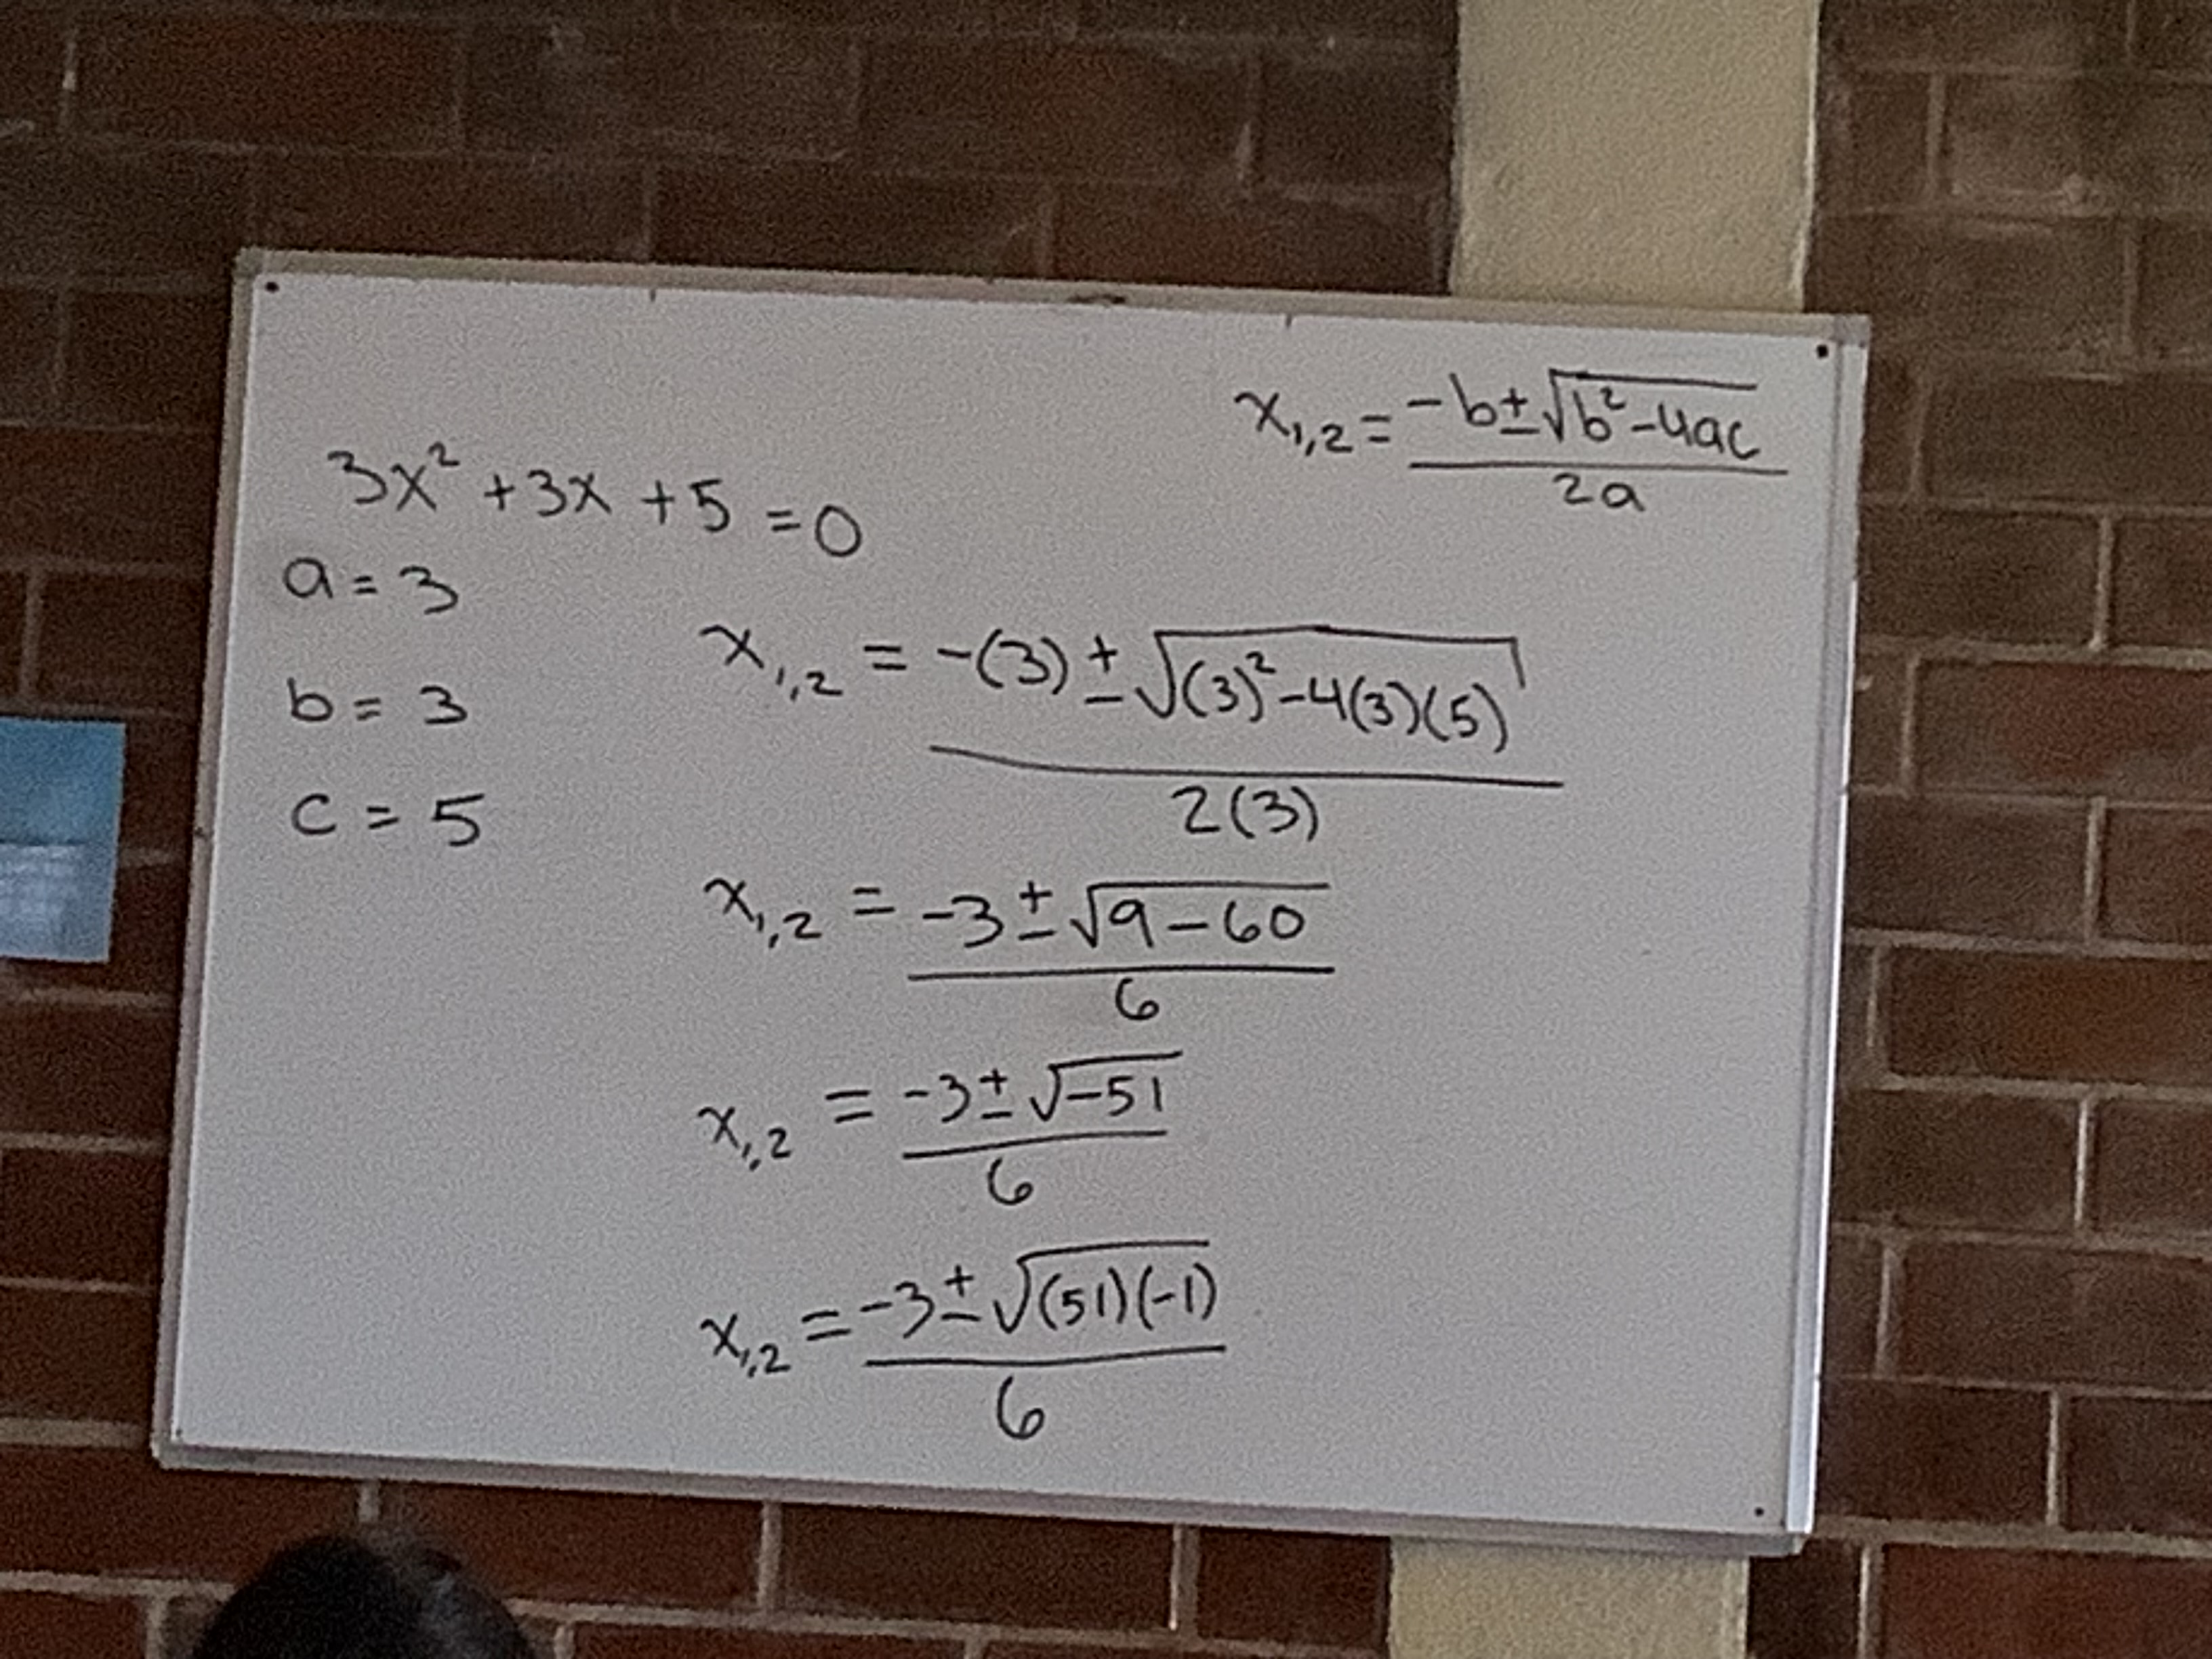 x₁,₂ = -b ± √b² - 4ac / 2a
3x² + 3x + 5 = 0
a = 3
b = 3
c = 5
x₁,₂ = -(3) ± √(3)² - 4(3)(5) / 2(3)
x₁,₂ = -3 ± √9 - 60 / 6
x₁,₂ = -3 ± √-51 / 6
x₁,₂ = -3 ± √(51)(-1) / 6